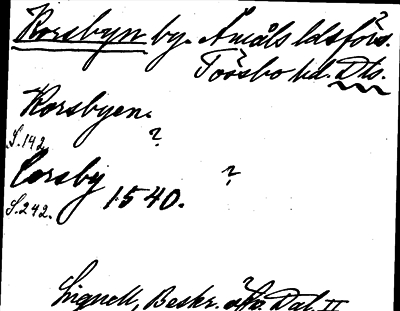 Korsbyn by. Åmåls ldsförs.
Tössbo hd. Dls.
Korsbyen.
S. 142 ?
Corsby 1540. ?
S. 242.
Lignell, Beskr. öfv. Dal. II